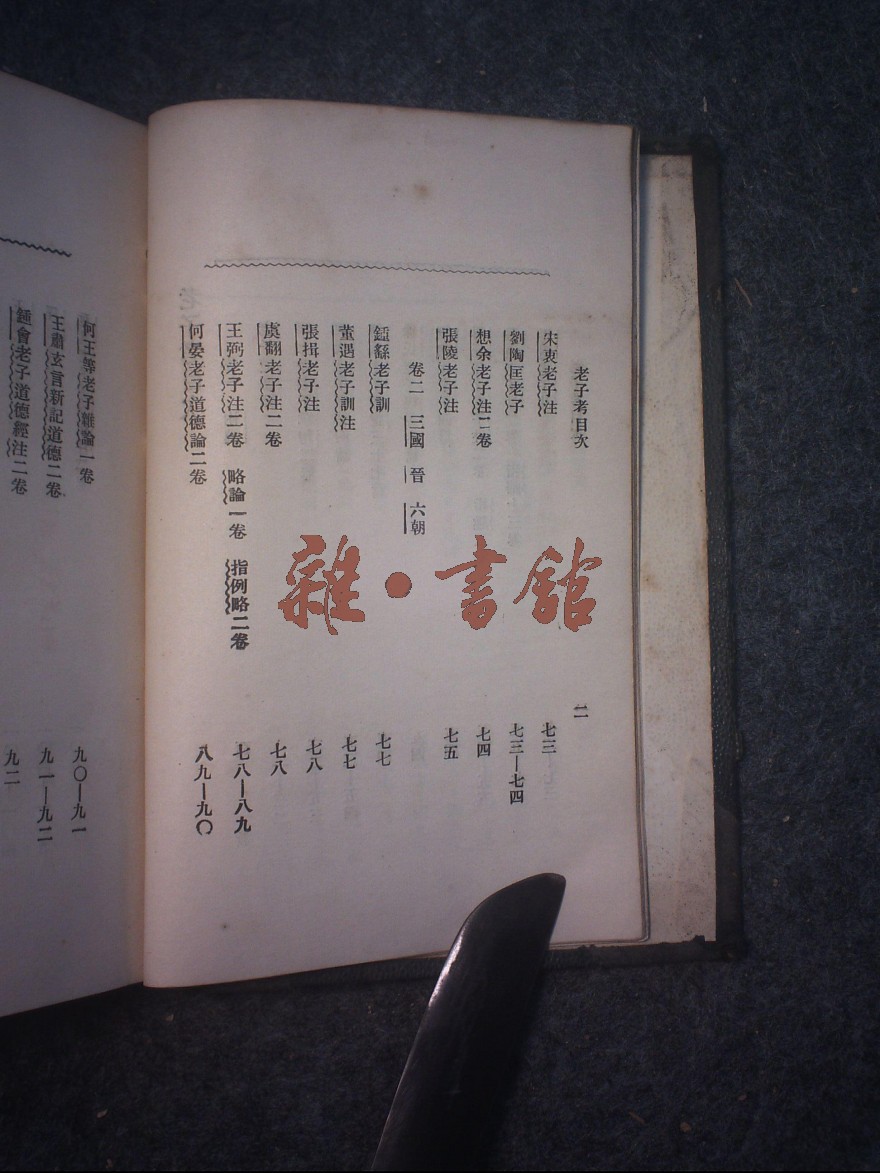 老子考目次 二
宋衷老子注 七三
劉陶匡老子 七三—七四
想余老子注二卷 七四
張陵老子注 七五
卷二 三國 晉 六朝
鍾繇老子訓 七七
董遇老子訓注 七七
張揖老子注 七八
虞翻老子注二卷 七八
王弼老子注二卷 略論一卷 指例略二卷 七八—八九
何晏老子道德論二卷 八九—九〇
何王等老子雜論一卷 九〇—九一
王肅玄言新記道德二卷 九一—九二
鍾會老子道德經注二卷 九二
雜·書館